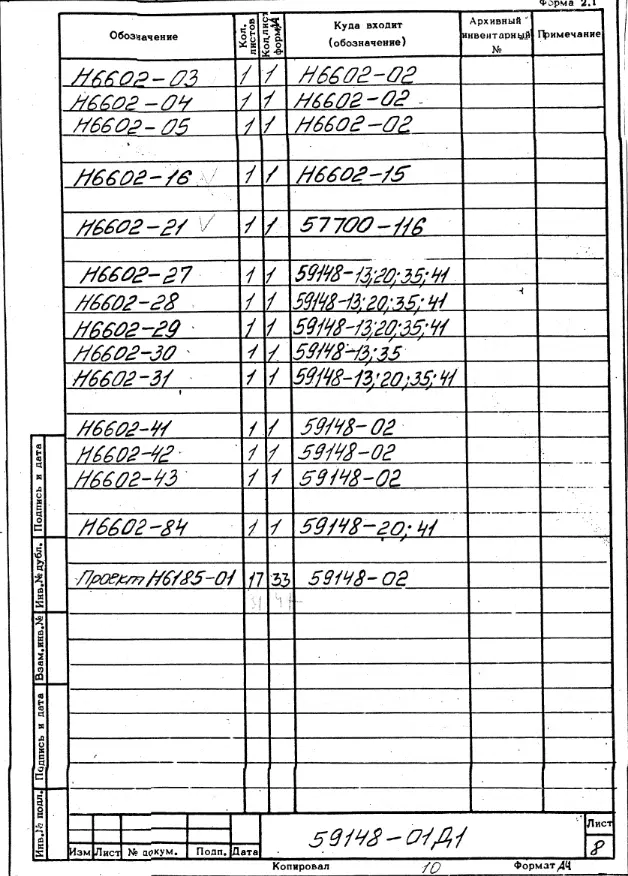 Форма 2.1
Обозначение Кол. листов Кол. лист формА4 Куда входит (обозначение) Архивный инвентарный № Примечание
Н6602-03 1 1 Н6602-02
Н6602-04 1 1 Н6602-02
Н6602-05 1 1 Н6602-02
Н6602-16 1 1 Н6602-15
Н6602-21 1 1 57700-116
Н6602-27 1 1 59148-13;20;35;41
Н6602-28 1 1 59148-13;20;35;41
Н6602-29 1 1 59148-13;20;35;41
Н6602-30 1 1 59148-13;35
Н6602-31 1 1 59148-13;20;35;41
Н6602-41 1 1 59148-02
Н6602-42 1 1 59148-02
Н6602-43 1 1 59148-02
Н6602-84 1 1 59148-20;41
Проект Н6185-01 17 33 59148-02
Подпись и дата
Инв.№ дубл.
Взам.инв.№
Подпись и дата
Инв.№ подл.
Изм Лист № докум. Подп. Дата
59148-01Д1
Лист
8
Копировал 10 Формат А4